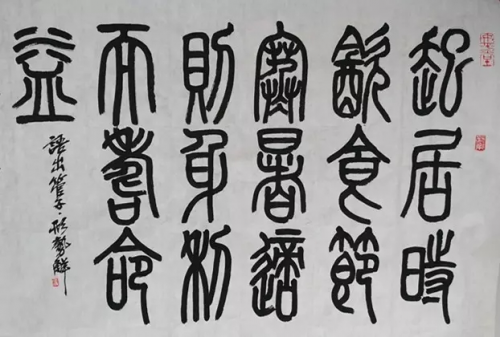 起居時
飲食節
寒暑適
則身利
而壽命
益
語出管子·形勢解